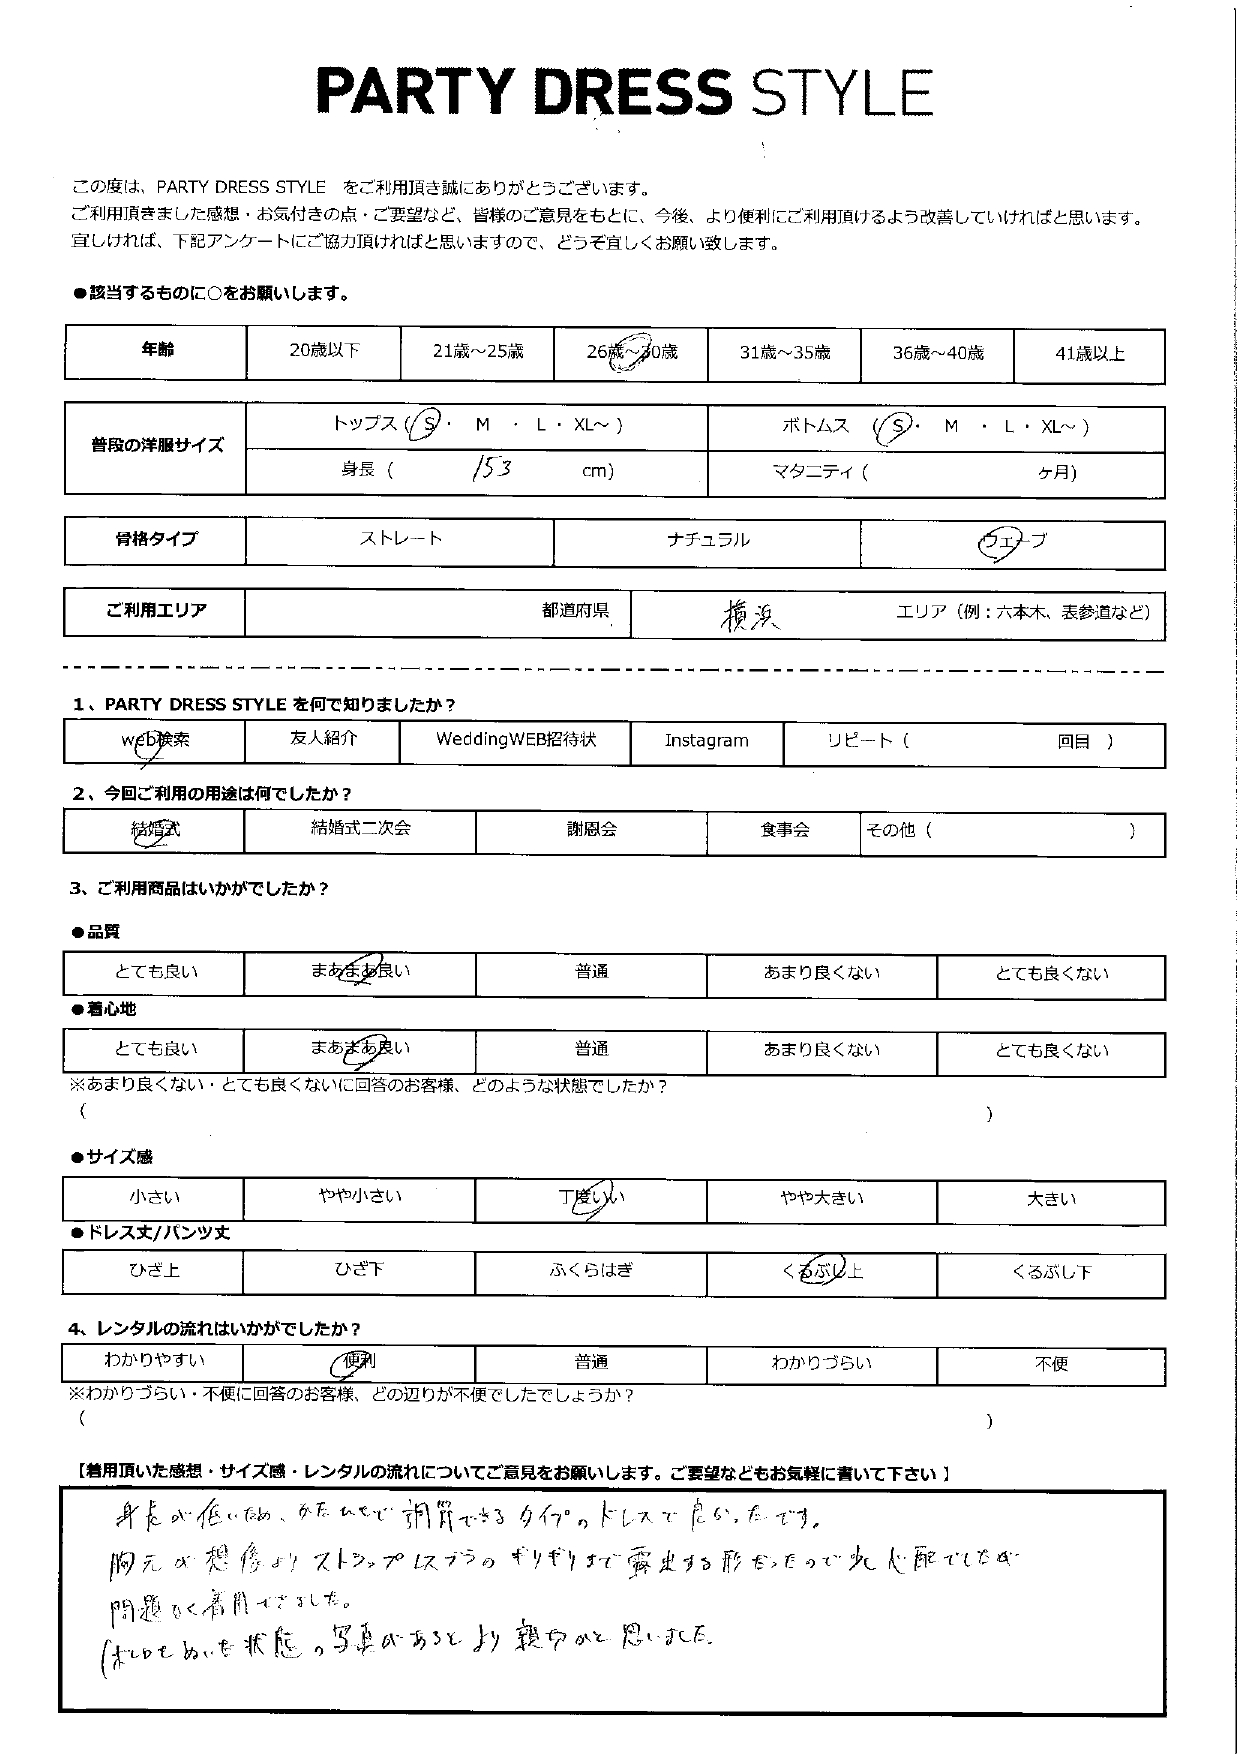 PARTY DRESS STYLE
この度は、PARTY DRESS STYLE をご利用頂き誠にありがとうございます。
ご利用頂きました感想・お気付きの点・ご要望など、皆様のご意見をもとに、今後、より便利にご利用頂けるよう改善していければと思います。
宜しければ、下記アンケートにご協力頂ければと思いますので、どうぞ宜しくお願い致します。
●該当するものに○をお願いします。
年齢 20歳以下 21歳～25歳 26歳～30歳 31歳～35歳 36歳～40歳 41歳以上
普段の洋服サイズ トップス (S・ M ・ L・XL～) ボトムス (S・ M ・L・XL～)
身長 ( 153 cm) マタニティ ( ヶ月)
骨格タイプ ストレート ナチュラル ウェーブ
ご利用エリア 都道府県 横浜 エリア（例：六本木、表参道など）
1、PARTY DRESS STYLE を何で知りましたか？
web検索 友人紹介 WeddingWEB招待状 Instagram リピート ( 回目 )
2、今回ご利用の用途は何でしたか？
結婚式 結婚式二次会 謝恩会 食事会 その他 ( )
3、ご利用商品はいかがでしたか？
●品質
とても良い まあまあ良い 普通 あまり良くない とても良くない
●着心地
とても良い まあまあ良い 普通 あまり良くない とても良くない
※あまり良くない・とても良くないに回答のお客様、どのような状態でしたか？
( )
●サイズ感
小さい やや小さい 丁度いい やや大きい 大きい
●ドレス丈/パンツ丈
ひざ上 ひざ下 ふくらはぎ くるぶし上 くるぶし下
4、レンタルの流れはいかがでしたか？
わかりやすい 便利 普通 わかりづらい 不便
※わかりづらい・不便に回答のお客様、どの辺りが不便でしたでしょうか？
( )
【着用頂いた感想・サイズ感・レンタルの流れについてご意見をお願いします。ご要望などもお気軽に書いて下さい】
身長が低いため、かたひもで調節できるタイプのドレスで良かったです。
胸元が想像よりストラップレスブラのギリギリまで露出する形だったので少し心配でしたが
問題なく着用できました。
をぬいだ状態の写真があるとより親切かと思いました。